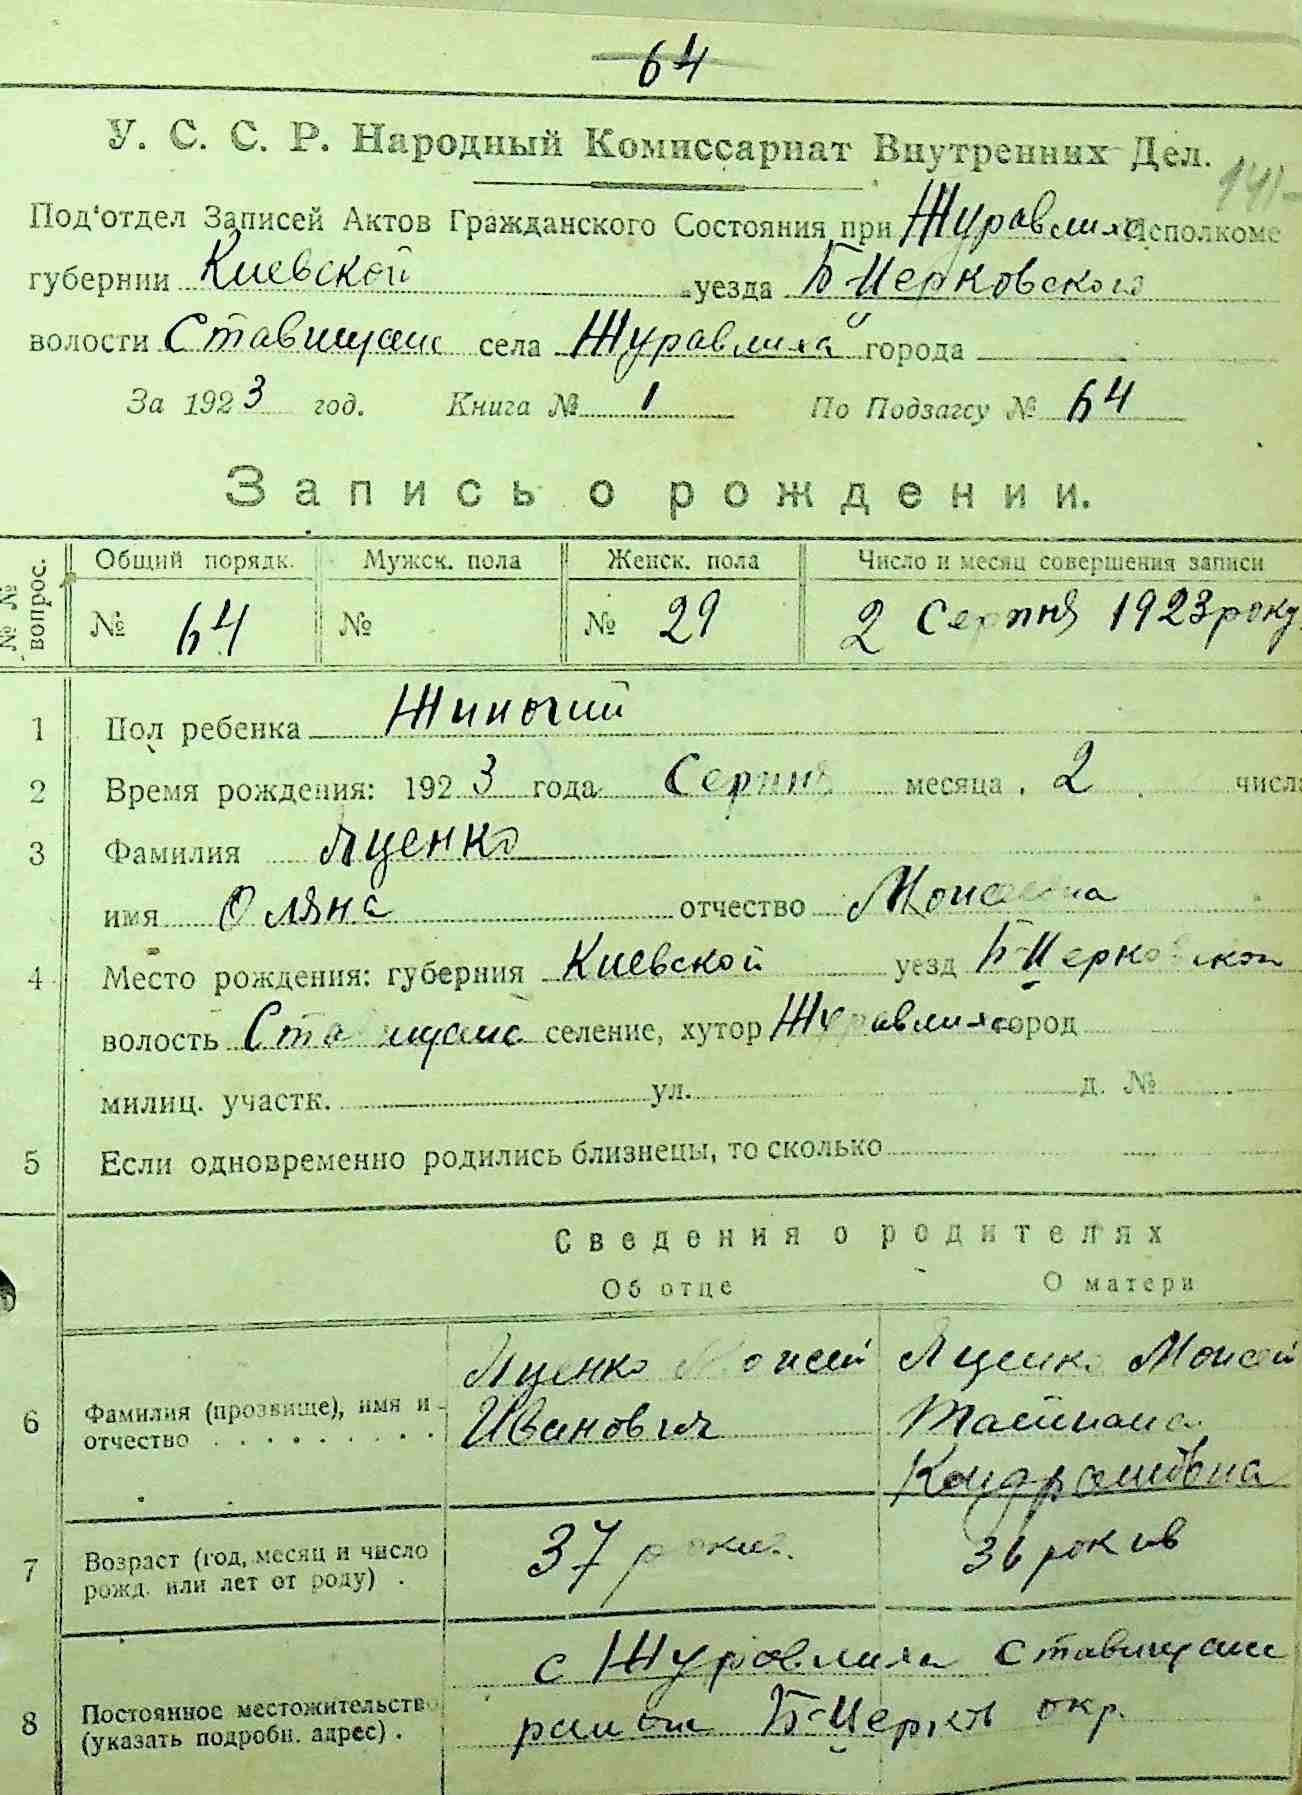 64
У. С. С. Р. Народный Комиссариат Внутренних Дел.
141
Под'отдел Записей Актов Гражданского Состояния при Журавлиха Исполкоме
губернии Киевской уезда Б-Церковского
волости Ставищанс села Журавлиха города
За 1923 год. Книга № 1 По Подзагсу № 64
Запись о рождении.
№ № вопрос. Общий порядк. Мужск. пола Женск. пола Число и месяц совершения записи
№ 64 № № 29 2 Серпня 1923 року
1 Пол ребенка Жиночий
2 Время рождения: 1923 года Серпня месяца 2 числа
3 Фамилия Яценко
имя Оляна отчество Моисеевна
4 Место рождения: губерния Киевской уезд Б-Церковской
волость Ставищанс селение, хутор Журавлиха город
милиц. участк. ул. д. №
5 Если одновременно родились близнецы, то сколько
Сведения о родителях
Об отце О матери
Яценко Моисей Яценко Моисей
6 Фамилия (прозвище), имя и Иванович
отчество Кондратовна
7 Возраст (год, месяц и число 37 роки 36 рокив
рожд. или лет от роду) .
с Журавлиха Ставищанс
8 Постоянное местожительство
(указать подробн. адрес) . Б-Церков окр.